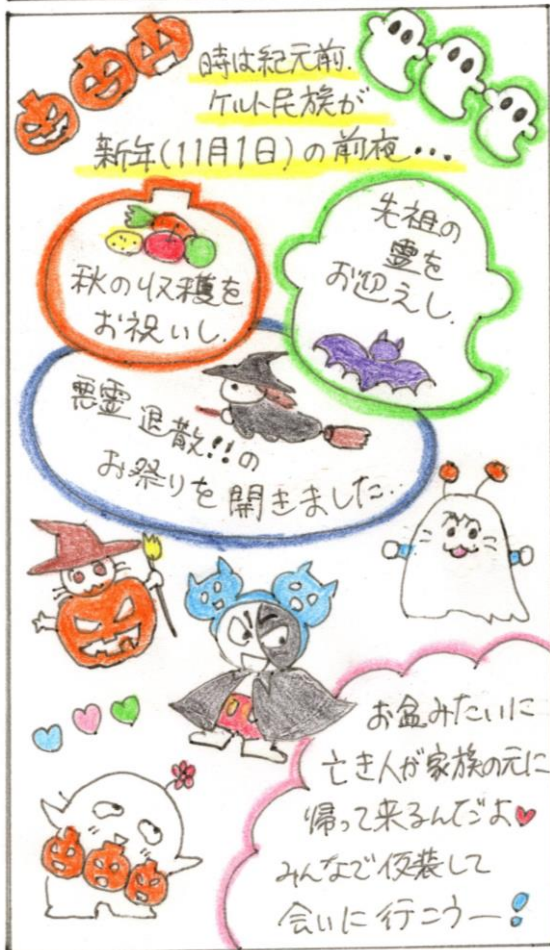 時は紀元前.
ケルト民族が
新年(11月1日)の前夜...
秋の収穫を
お祝いし.
先祖の
霊を
お迎えし.
悪霊退散!!の
お祭りを開きました..
お盆みたいに
亡き人が家族の元に
帰って来るんだよ♥
みんなで仮装して
会いに行こうー!